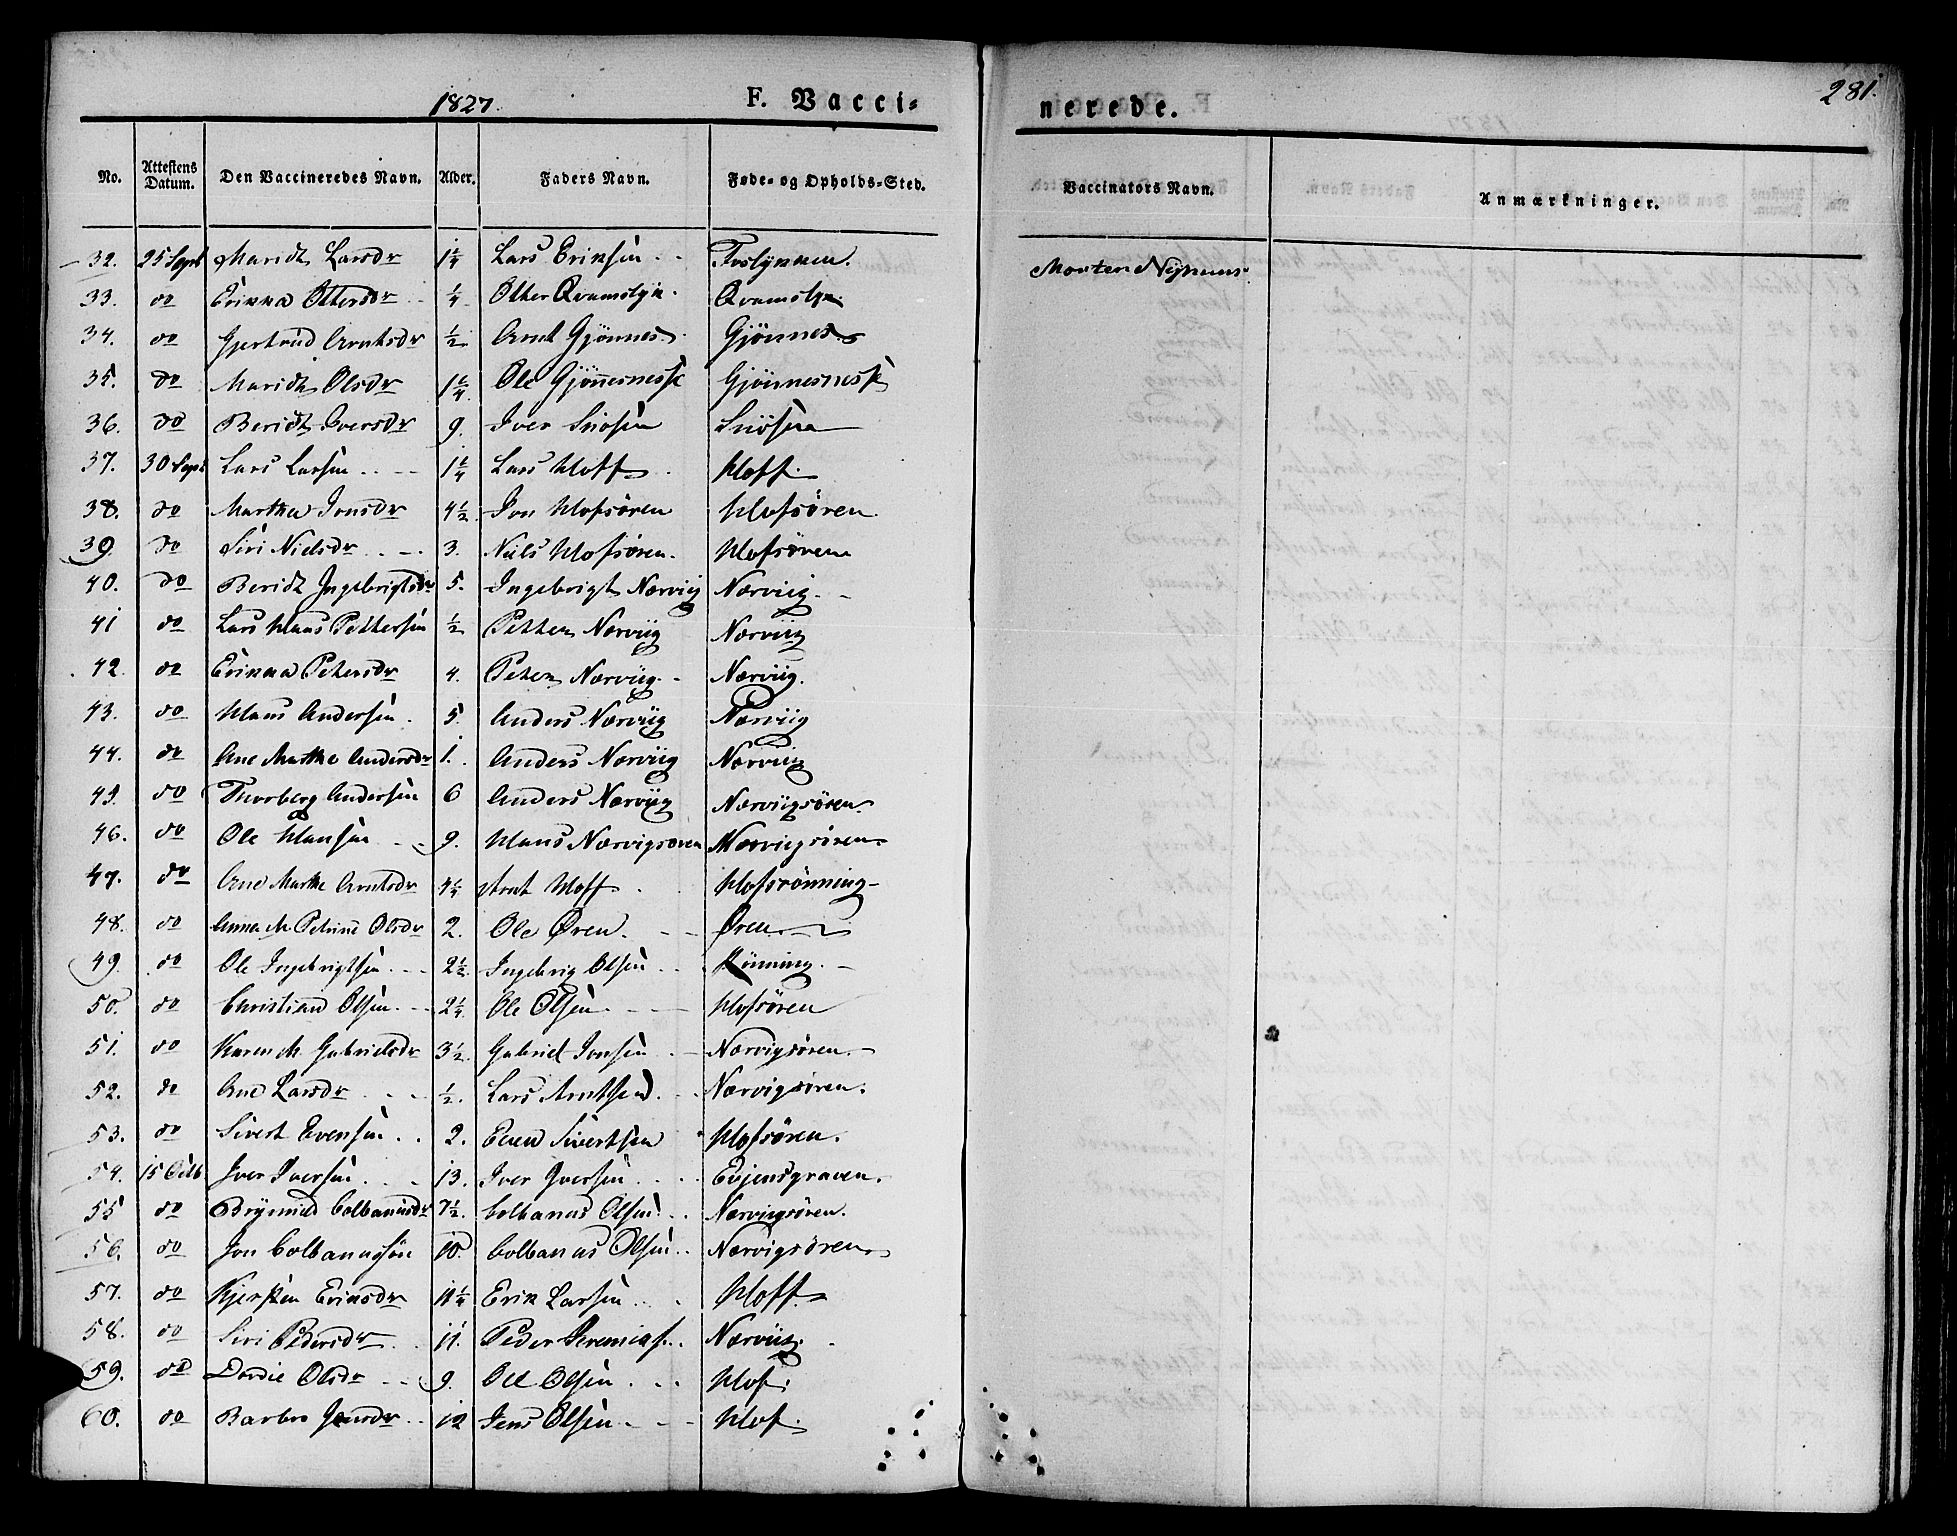 1827. F. Vacci=
nerede. 281.
No. Attestens Datum. Den Vaccineredes Navn. Alder. Faders Navn. Føde- og Opholds-Sted.
Vaccinators Navn. Anmærkninger.
32. 25 Sept Maridt Larsdr 1 1/4 Lars Ericksen Foslynnen. Morten Nygnues
33. do Erikka Ottersdr 1/4 Otter Qvamslyk. Qvamslyk
34. do Gjertrud Arntsdr 1/2 Arnt Gjönnes Gjönnes
35. do Maridt Olsdr 1 1/4 Ole Gjönnesness Gjönnesness
36. do Beridt Iversdr 9. Iver Snösen Snösen
37. 30 Sept Lars Larsen 1 1/4 Lars Hoff Hoff.
38. do Martha Jonsdr 4 1/2 Jon Hofsören Hofsören
39. do Siri Nielsdr 3. Niels Hofsören. Hofsören
40. do Beridt Ingebrigtsdr 5. Ingebrigt Norviig Norviig.
41 do Lars Hans Pettersen 1/2 Petter Norviig Norviig
42. do Erikka Petersdr 4. Peter Norviig Norviig.
43. do Hans Andersen. 5. Anders Norviig Norviig
44. do Ane Martha Andersdr 1. Anders Norviig Norviig
45. do Thorberg Andersen 6 Anders Norviig Norviigsören.
46. do Ole Hansen 9. Hans Norvigsören Norvigsören
47. do Ane Marthe Arntsdr 4 1/4 Arnt Hoff Hofsrönning
48. do Anna M. Petrine Olsdr 2. Ole Øren. Øren
49. do Ole Ingebrigtsen 2 1/2. Ingebrig Olsen Rönning.
50. do Christian Olsen 2 1/4. Ole Olsen. Hofsören
51. do Karen M. Gabrielsdr 3 1/2. Gabriel Jonsen Norvigsören.
52. do Ane Larsdr 1/2. Lars Arntsen. Norvigsören.
53. do Sivert Evensen 2. Even Sivertsen Hofsören.
54. 15 Octb. Iver Iversen 13. Iver Iversen Evjensgraven.
55 do Brynnild Colbanusdr 7 1/2. Colbanus Olsen Norvigsören.
56. do Jon Colbanussön 10. Colbanus Olsen Norvigsören
57. do Kjersten Eriksdr 11 1/4 Erik Larsen Hoff
58. do Siri Pedersdr 11. Peder Jeremias. Norviig.
59. do Dordie Olsdr 9. Ole Olsen Hof.
60. do Barbro Jensdr 12 Jens Olsen Hof.